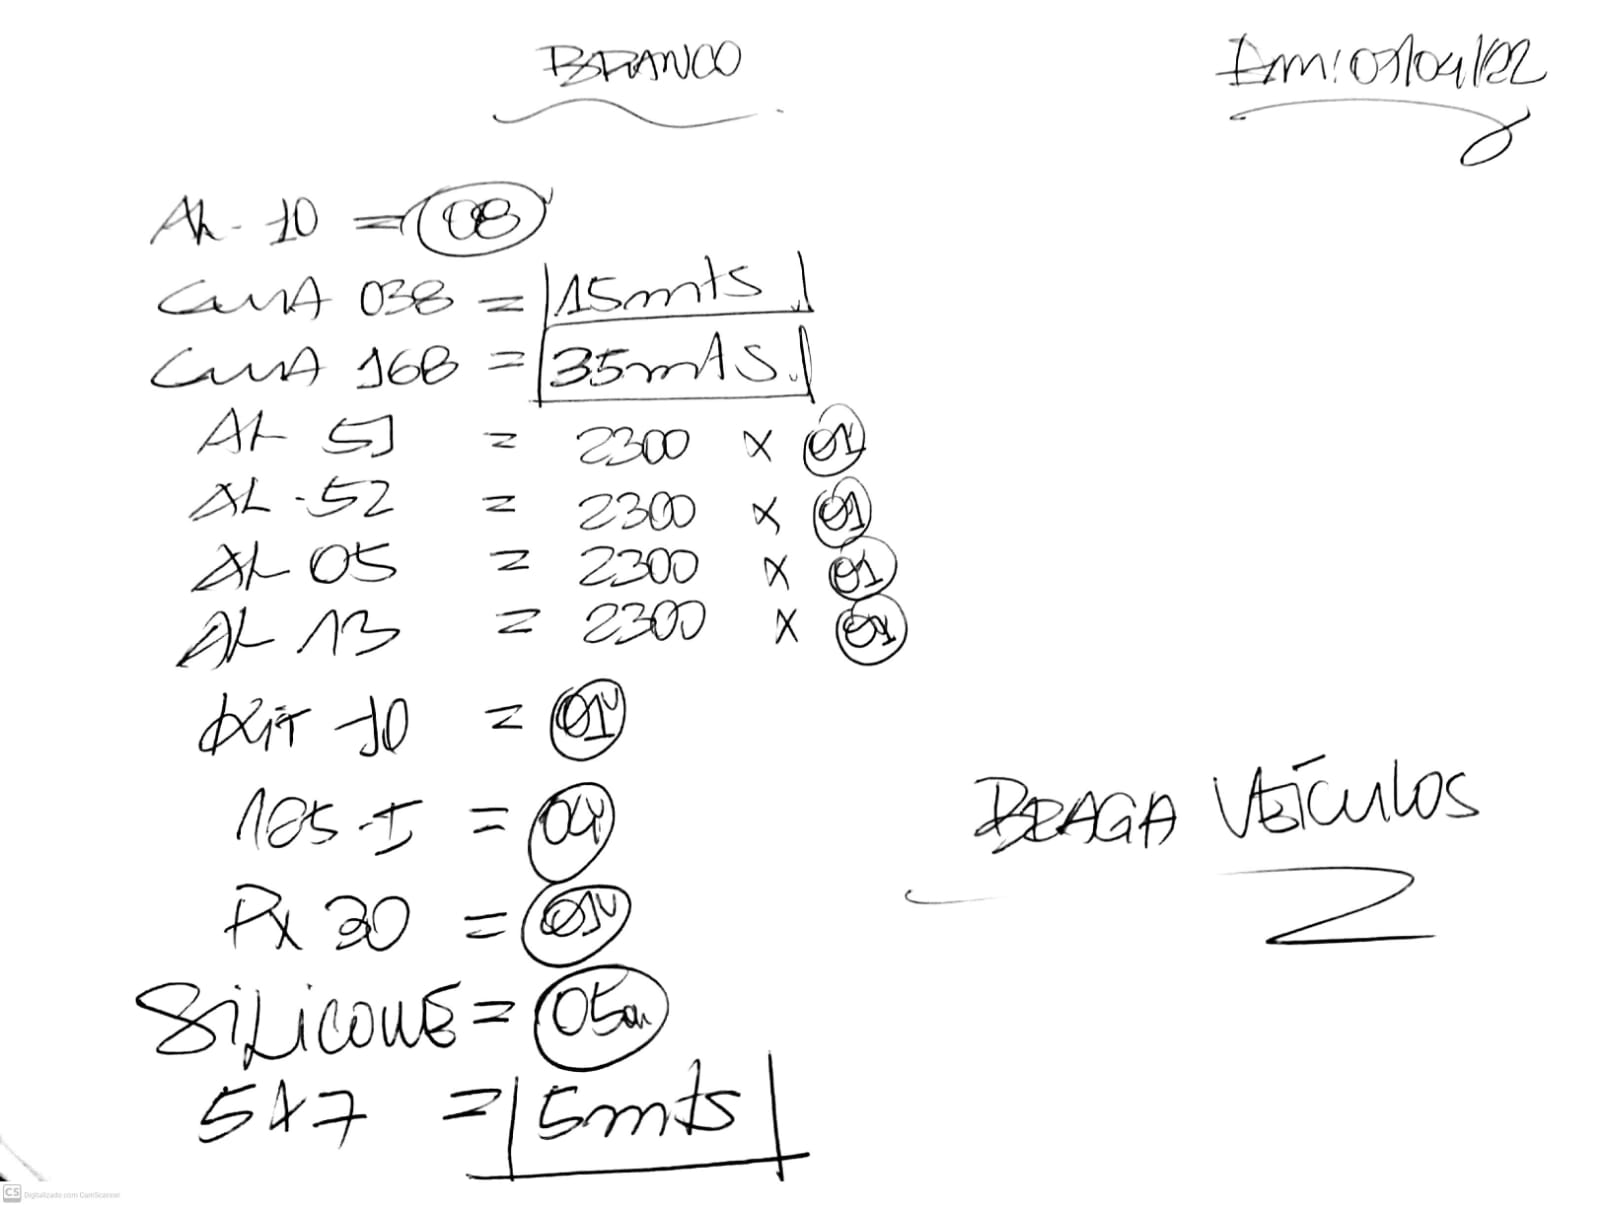 BRANCO
Em: 07/04/22
AL-10 = 08
CUNA 038 = 15mts
CUNA 168 = 35mts.
AL 51 = 2300 x 01
AL-52 = 2300 x 01
AL 05 = 2300 x 01
AL 13 = 2300 x 01
Kit 10 = 01
185-I = 04
PX 30 = 01
BRAGA VEÍCULOS
SILICONE = 05
5x7 = 5mts
CS Digitalizado com CamScanner